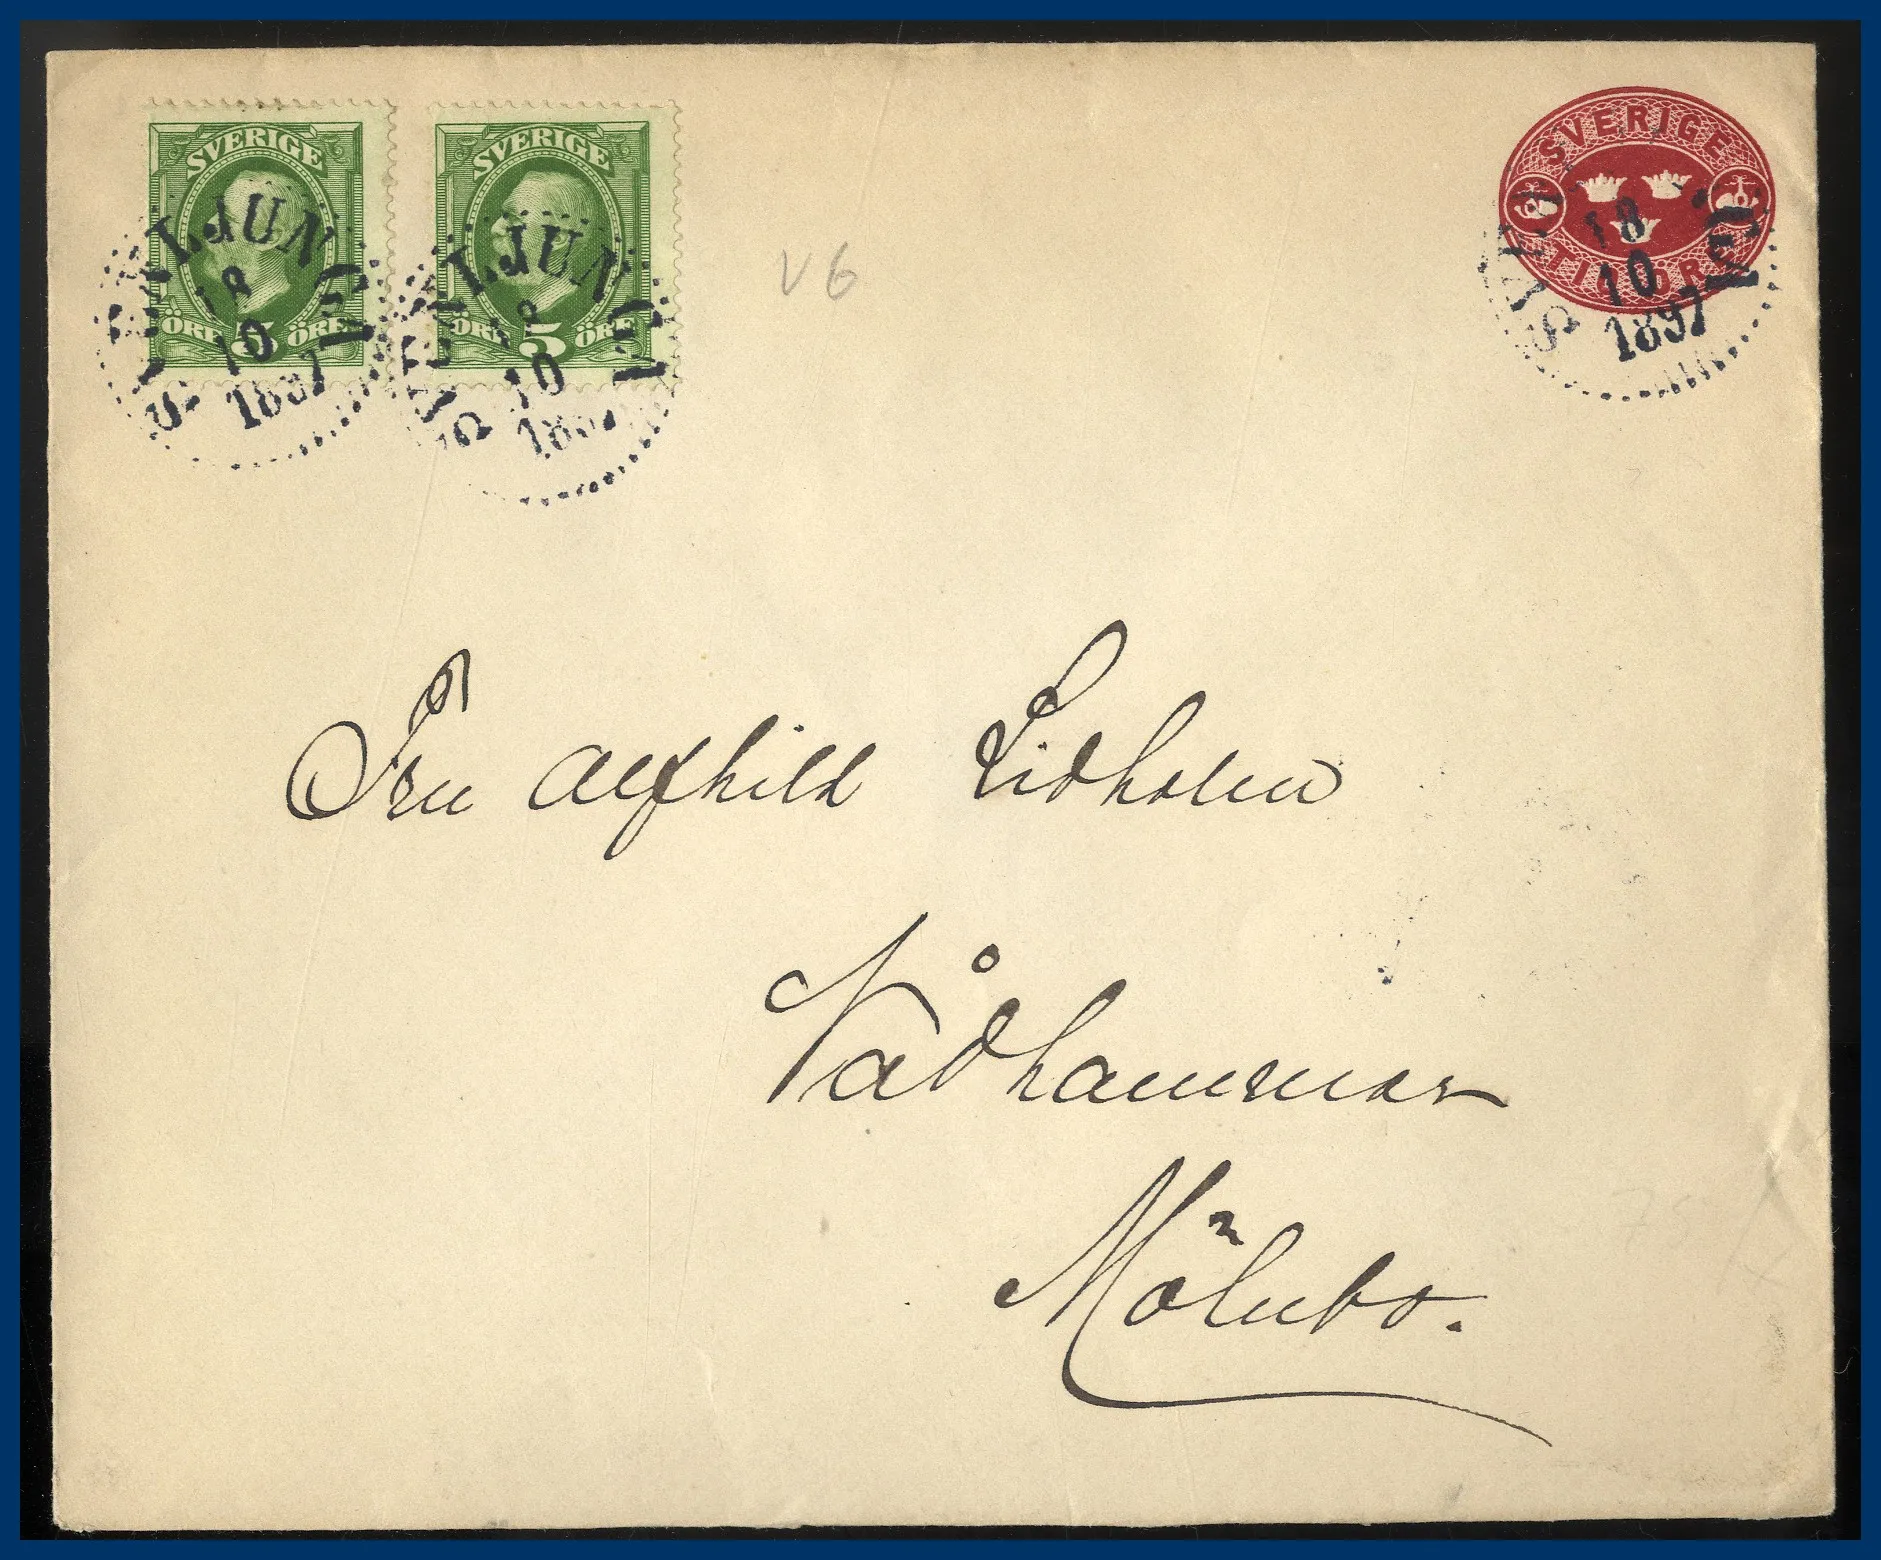 SVERIGE
ÖRE 5 ÖRE
SVERIGE
ÖRE 5 ÖRE
SVERIGE
TIO ÖRE
LJUNGA
18
10
1897
LJUNGA
18
10
1897
18
10
1897
V6
Fru Alfhild Lidholm
Nådhammar
Mölnbo.
75